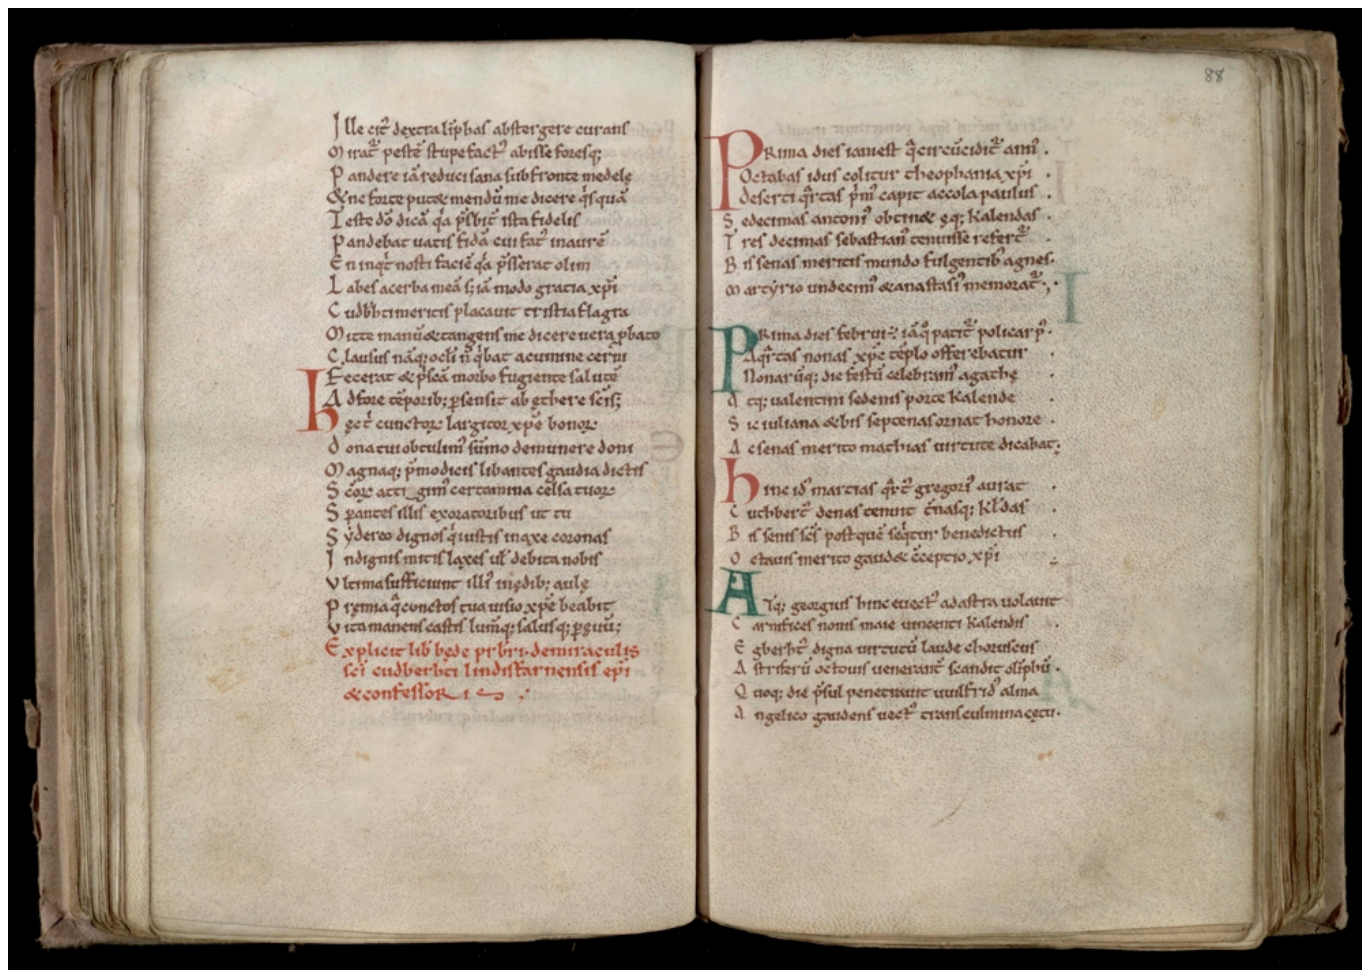 Ille cit̄ dextra lip̄has abstergere curans
Mirat᷑ pestē stupefact᷒ abisse foresq;
Pandere iā reduci sana sub fronte medelę
& ne forte putet mendū me dicere q̇s quā
Teste dō dicā q̇a p̄sbit̄ ista fidelis
Pandebat uatis fidā cui fat᷒ in aurē
En inq̇t nosti faciē q̇a p̄sserat olim
Labes acerba meā s; iā modo gratia xp̄i
Cudb̄hti meritis placauit tristia flagra
Mitte manū & tangens me dicere uera ꝓbato
Clausus nāq; oclī n̄ q̇bat acumine cerni
Fecerat & p̄scā morbo fugiente salutē
Adfore tēporib; ꝑsensit ab ęthere scīs;
hęc t̄ cunctoꝝ largitor xp̄e bonoꝝ
Donatui obtulim᷒ sūmo de munere doni
Magnaq; p̄ modicis libantes gaudia dictis
Scōꝝ actigim᷒ certamina celsa tuoꝝ
Sꝑantes illis exoratoribus ut tu
Sydereo dignos q̇ iustis in axe coronas
Indignis mitis laxes ul̄ debita nobis
Vltima sufficiunt ill᷒ in ędib; aulę
Pręmia q̄ cunctos tua uisio xp̄e beabit
Vita manens castis lum̄q; salusq; ꝑęuū;
Explicit lib᷒ bede pr̄bri. de miraculis
sc̄i cudberhti lindisfarnensis ep̄i
& confessoris
88
PRima dies iani est q̄ circūcidit᷑ am᷒ .
Octabas idus colitur theophania xp̄i .
Deserti q̇rtas p̄m᷒ capit accola paulus .
Sedecimas antoni᷒ obtinet ęq; kalendas .
Tres decimas sebastian᷒ tenuisse refert᷑ .
Bis senas meritis mundo fulgentib᷒ agnes.
Martyrio undecim᷒ & anastasi᷒ memorat᷑ .,
PRima dies februi ÷ iā q̇ patit᷑ policarp᷒ .
Aq̇rtas nonas xp̄c tēplo offerebatur .
Nonarūq; die festū celebram᷒ agathę .
Atq; ualentini sedenis sorte kalende .
Sic iuliana & bis septenas ornat honore .
Ac senas merito mathias uirtute dicabat;
hinc id᷒ martias q̇rt̄ gregori᷒ aurat .
Cuthbert᷒ denas tenuit t̄nasq; kl̄das .
Bis senis sc̄s post quē seq̇tur benedictus .
Octauis merito gaudet cōceptio xp̄i
Atq; georgius hinc euect᷒ ad astra uolauit
Carnifices nonis maie uincenti kalendis
Egberht᷒ digna uirtutū laude choruscus
Astriferū octouis uenerant᷒ scandit olip̄hū.
Quoq; die p̄sul penetrauit uuilfrid᷒ alma
Angelico gaudens uect᷒ trans culmina cętu.